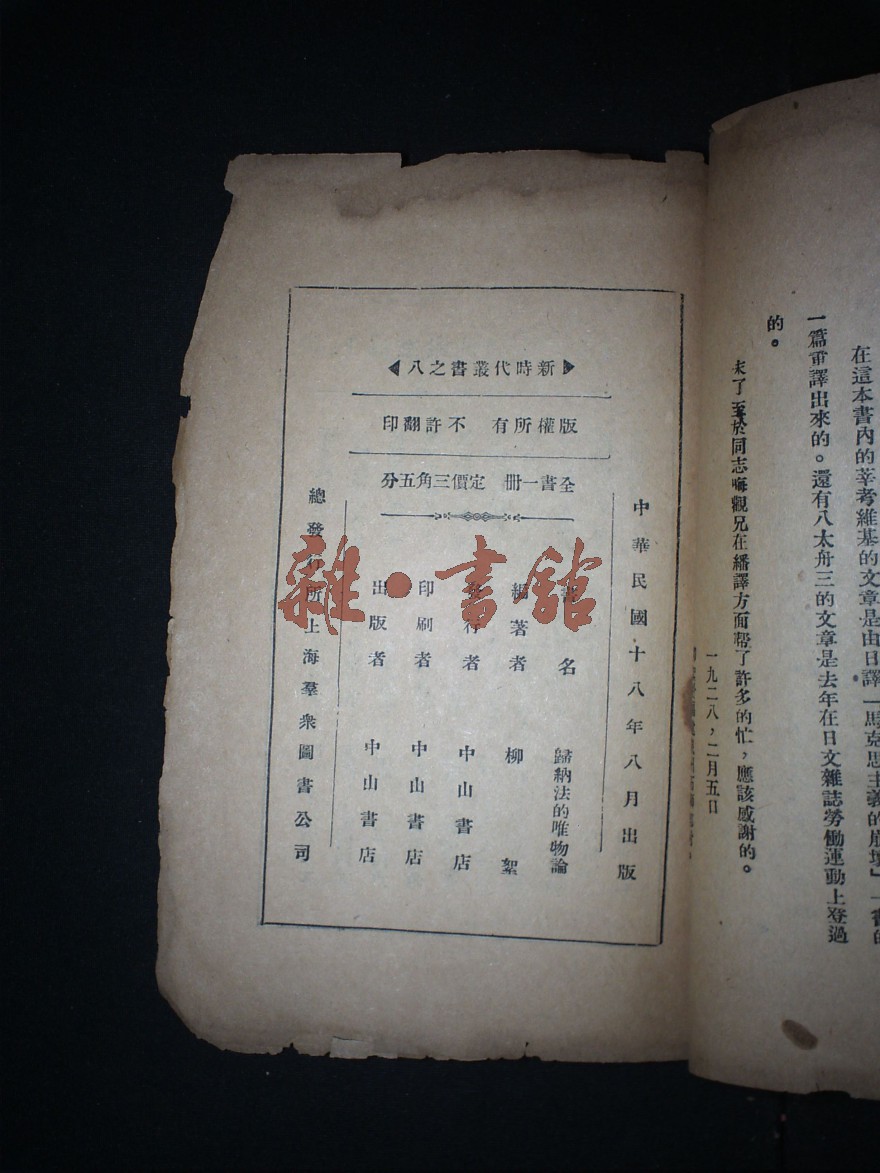 在這本書內的莘考維基的文章是由日譯「馬克思主義的崩壞」一書的
一篇重譯出來的。還有八太舟三的文章是去年在日文雜誌勞働運動上登過
的。
末了至於同志晦觀兄在繙譯方面帮了許多的忙，應該感謝的。
一九二八，二月五日
新時代叢書之八
版權所有 不許翻印
全書一冊 定價三角五分
中華民國十八年八月出版
書名 歸納法的唯物論
編著者 柳絮
發行者 中山書店
印刷者 中山書店
出版者 中山書店
總發行所上海羣衆圖書公司
雜·書館